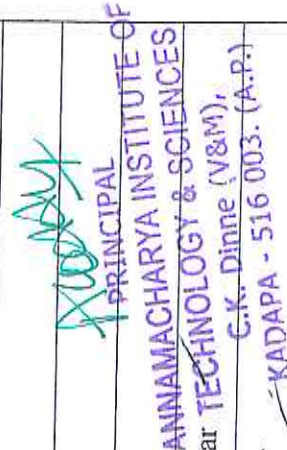 PRINCIPAL
ANNAMACHARYA INSTITUTE OF
ar TECHNOLOGY & SCIENCES
C.K. Dinne (V&M),
KADAPA - 516 003. (A.P.)